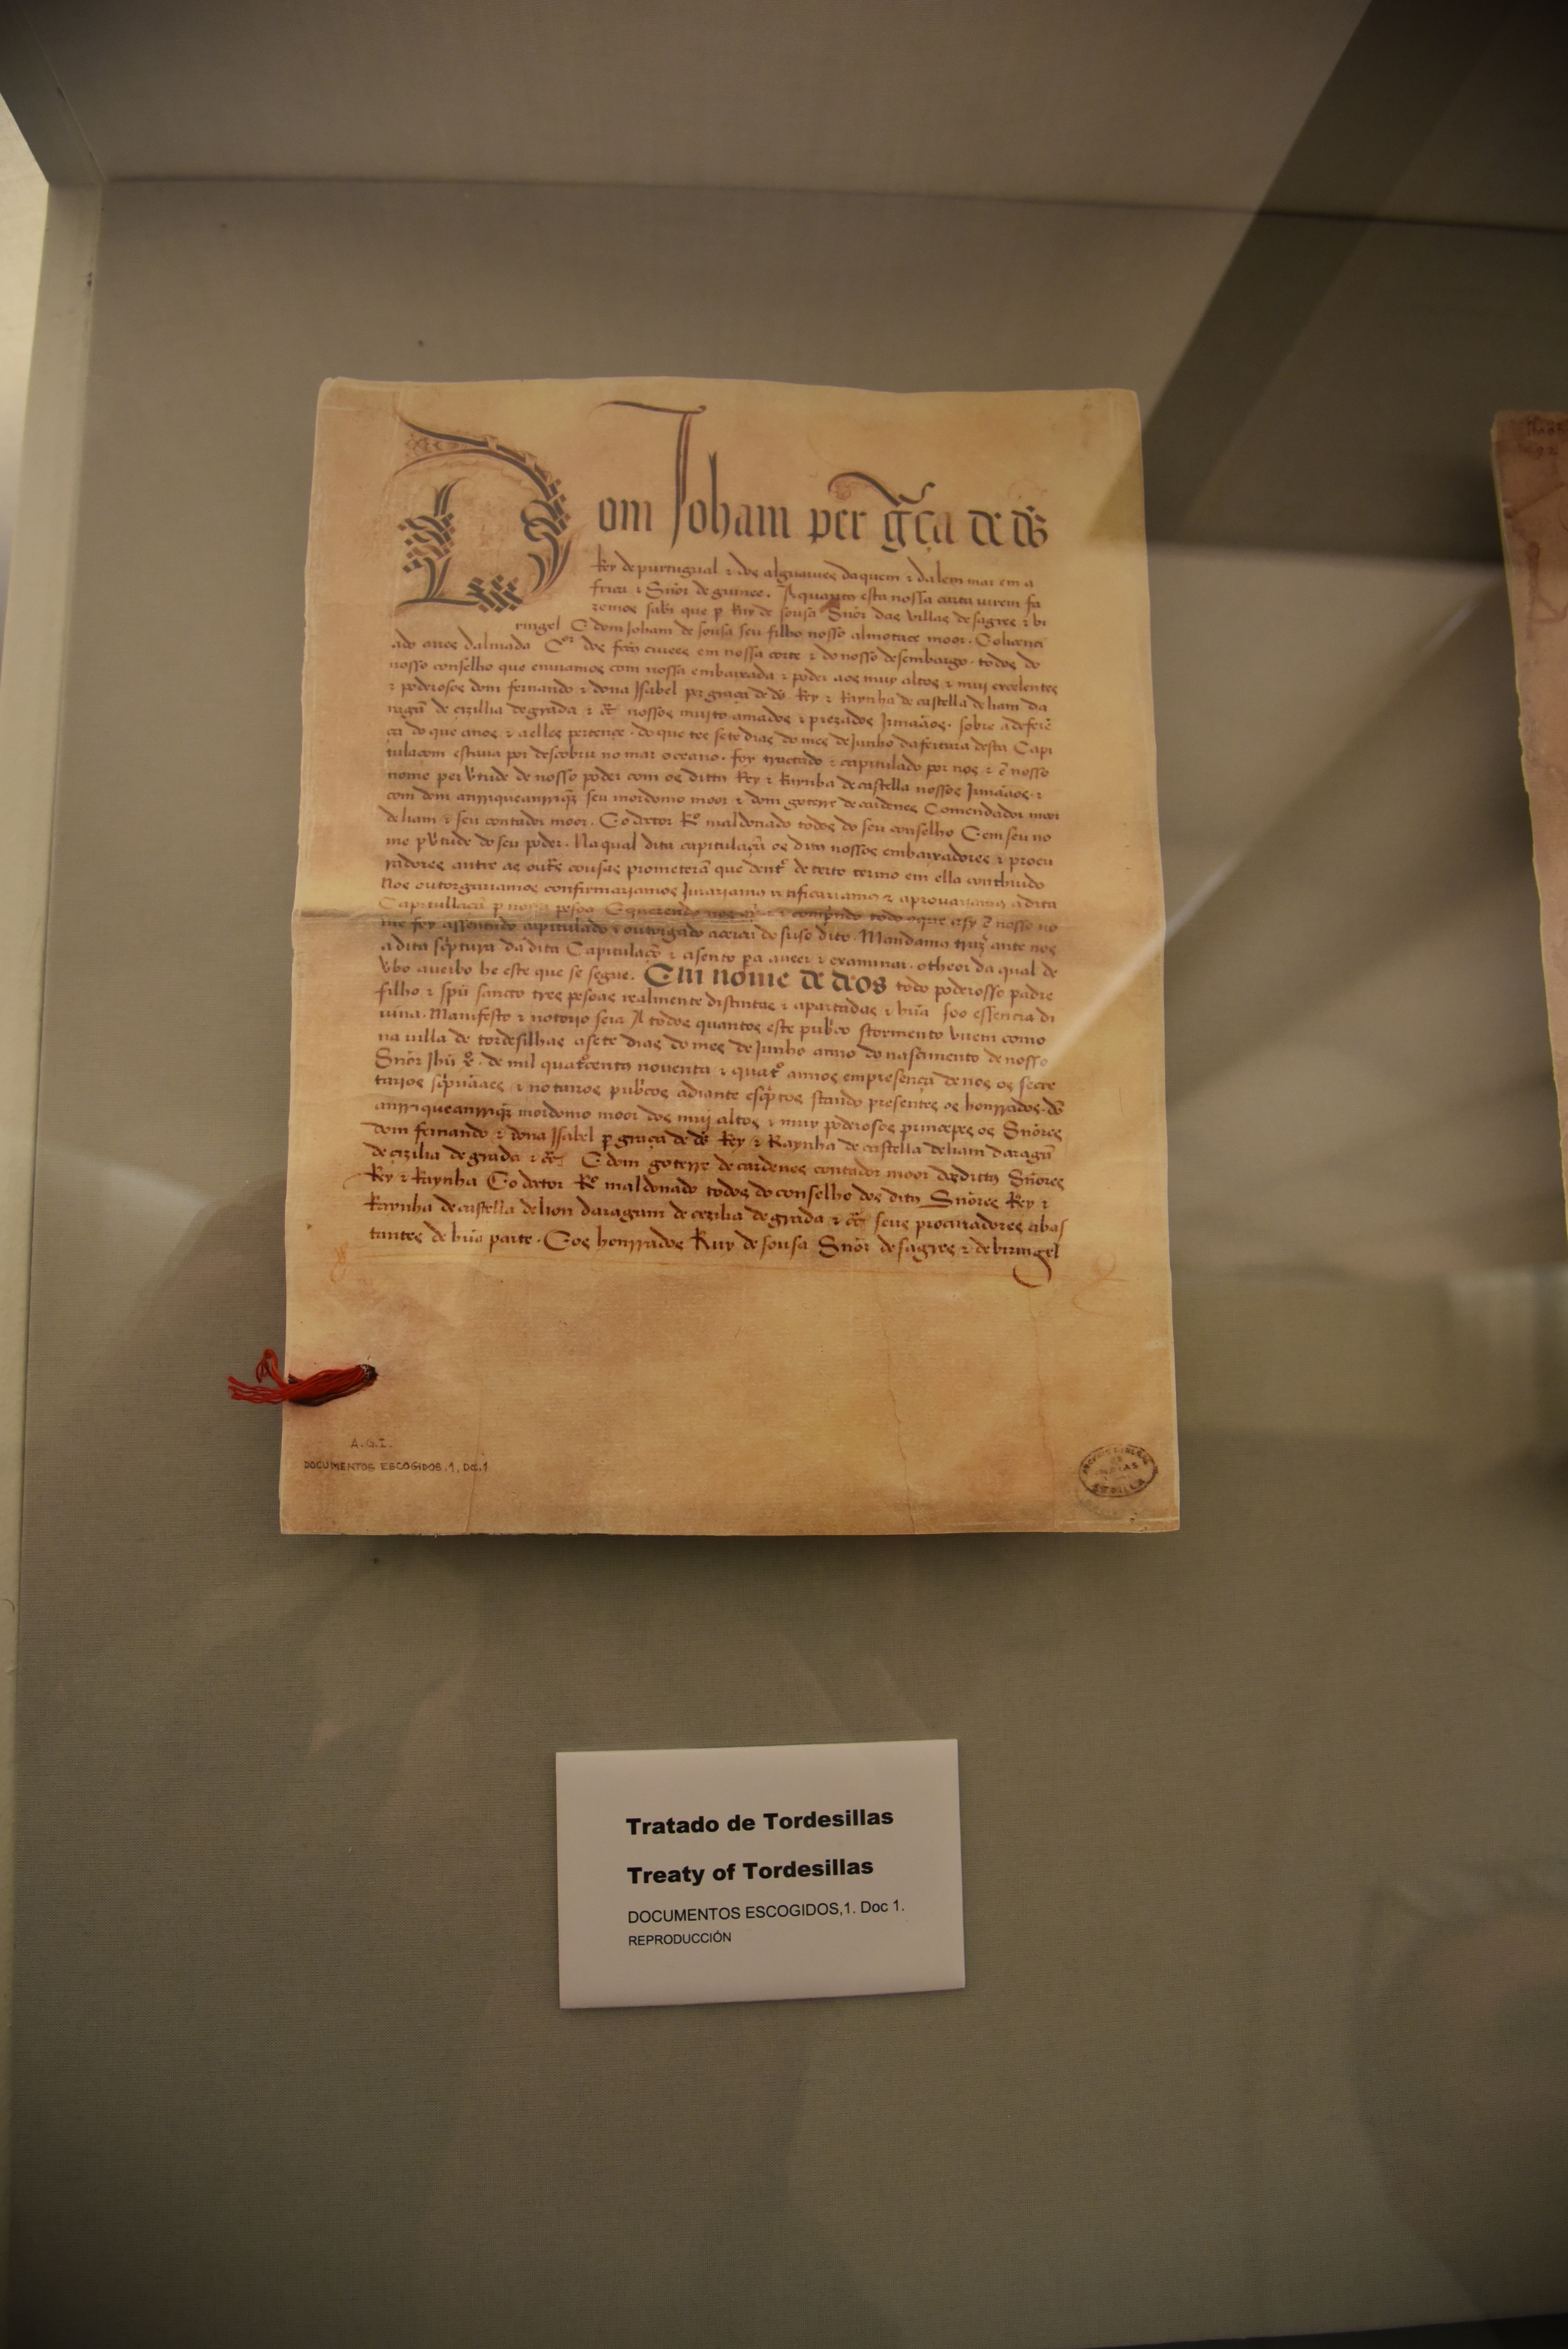 Dom Joham per g̃ça de ds̃
Rey de purtugual ⁊ dos alguarues daquem ⁊ dalem mar em a
frica ⁊ Snõr de guinee. A quantos esta nossa carta virem fa
zemos saber que p Ruy de sousa Snõr das villas de sagres ⁊ bi
ringel E dom Joham de sousa seu filho nosso almotace moor. E o licenci
ado aires dalmada Cor dos ciuees em nossa corte ⁊ do nosso desembargo. todos do
nosso conselho que enviamos com nossa embaixada ⁊ poder aos muy altos ⁊ muy excelentes
⁊ poderosos dom fernando ⁊ dona Isabel per graça de ds̃ Rey ⁊ Raynha de castella de liam da
ragã de cizilia de grãda ⁊ c̃ nossos muito amados ⁊ prezados Jrmaãos. sobre a deferẽ
ça do que anos ⁊ a elles pertençe. do que tee sete dias do mes de Junho da fectura desta Capi
tulaçom estaua por descobrir no mar oceano. foy tractado ⁊ capitulado por nos ⁊ ẽ nosso
nome per vtude de nosso poder com os dittos Rey ⁊ Raynha de castella nossos Jrmaãos. ⁊
com dom anrrique anrriqz̃ seu mordomo moor ⁊ dom goterre de cardenes Comendador moor
de liam ⁊ seu contador moor. E o doctor Ro maldonado todos do seu conselho E em seu no
me p vtude do seu poder. Na qual dita capitulaçã os ditos nossos embaixadores ⁊ procu
radores antre as outrs cousas prometerã que dento de certo termo em ella contheudo
Nos outorgariamos confirmariamos Jurariamos ratificariamos ⁊ aprouariamos a dita
Capitullaçã p nossa pesoa E querendo nos ⁊ comprindo todo o que asy ẽ nosso no
me foy assentado capitulado ⁊ outorgado acerca do suso dito. Mandamos trazer ante nos
a dita scptura da dita Capitulaçõ ⁊ asento pa a veer ⁊ examinar. o theor da qual de
vbo a verbo he este que se segue. Em nome de deos todo poderosso padre
filho ⁊ spũ sancto tres pesoas realmente distintas ⁊ apartadas ⁊ hũa soo essencia di
uina. Manifesto ⁊ notorio seia A todos quantos este pubco stormento virem como
na villa de tordesilhas a sete dias do mes de Junho anno do nascimento de nosso
Snõr Jhũ xo. de mil quatocentos noventa ⁊ quato annos em presença de nos os secre
tarios scpuãaes ⁊ notarios pubcos adiante escptos stando presentes os honrrados. dõ
anrrique anrriqz̃ mordomo moor dos muj altos ⁊ muy poderosos princepes os Snõres
dom fernando ⁊ dona Isabel p graça de ds̃ Rey ⁊ Raynha de castella de liam daragã
de cizilia de grãda ⁊ c̃ E dom goterre de cardenes contador moor dos dittos Snõres
Rey ⁊ Raynha E o doctor Ro maldonado todos do conselho dos dittos Snõres Rey ⁊
Raynha de castella de lion daragam de cezilia de grãda ⁊ c̃ seus procuradores abas
tantes de hũa parte. E os honrrados Ruy de sousa Snõr de sagres ⁊ de biringel
A.G.I.
DOCUMENTOS ESCOGIDOS.1, Doc.1
SEVILLA
Tratado de Tordesillas
Treaty of Tordesillas
DOCUMENTOS ESCOGIDOS,1. Doc 1.
REPRODUCCIÓN